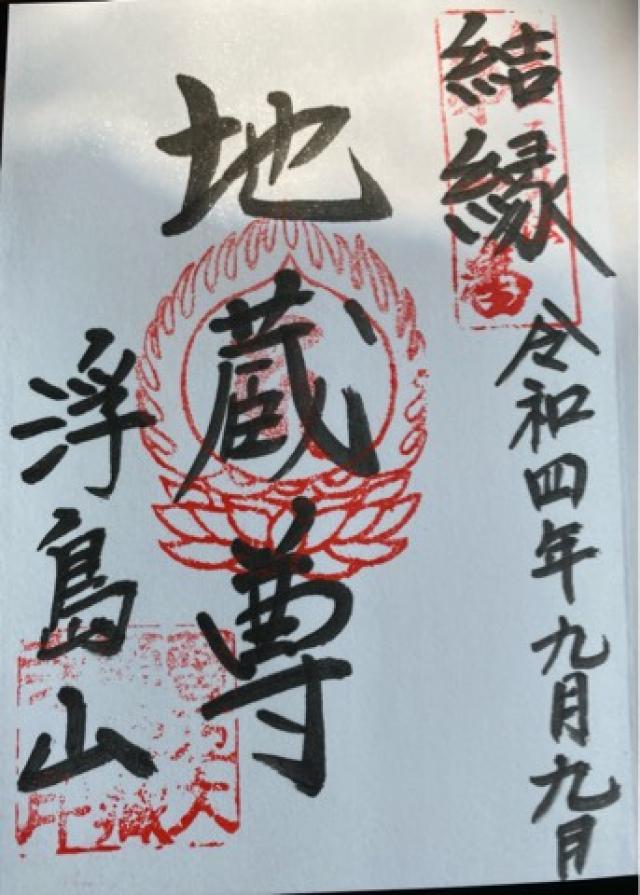 結縁
令和四年九月九月
地蔵尊
浮島山